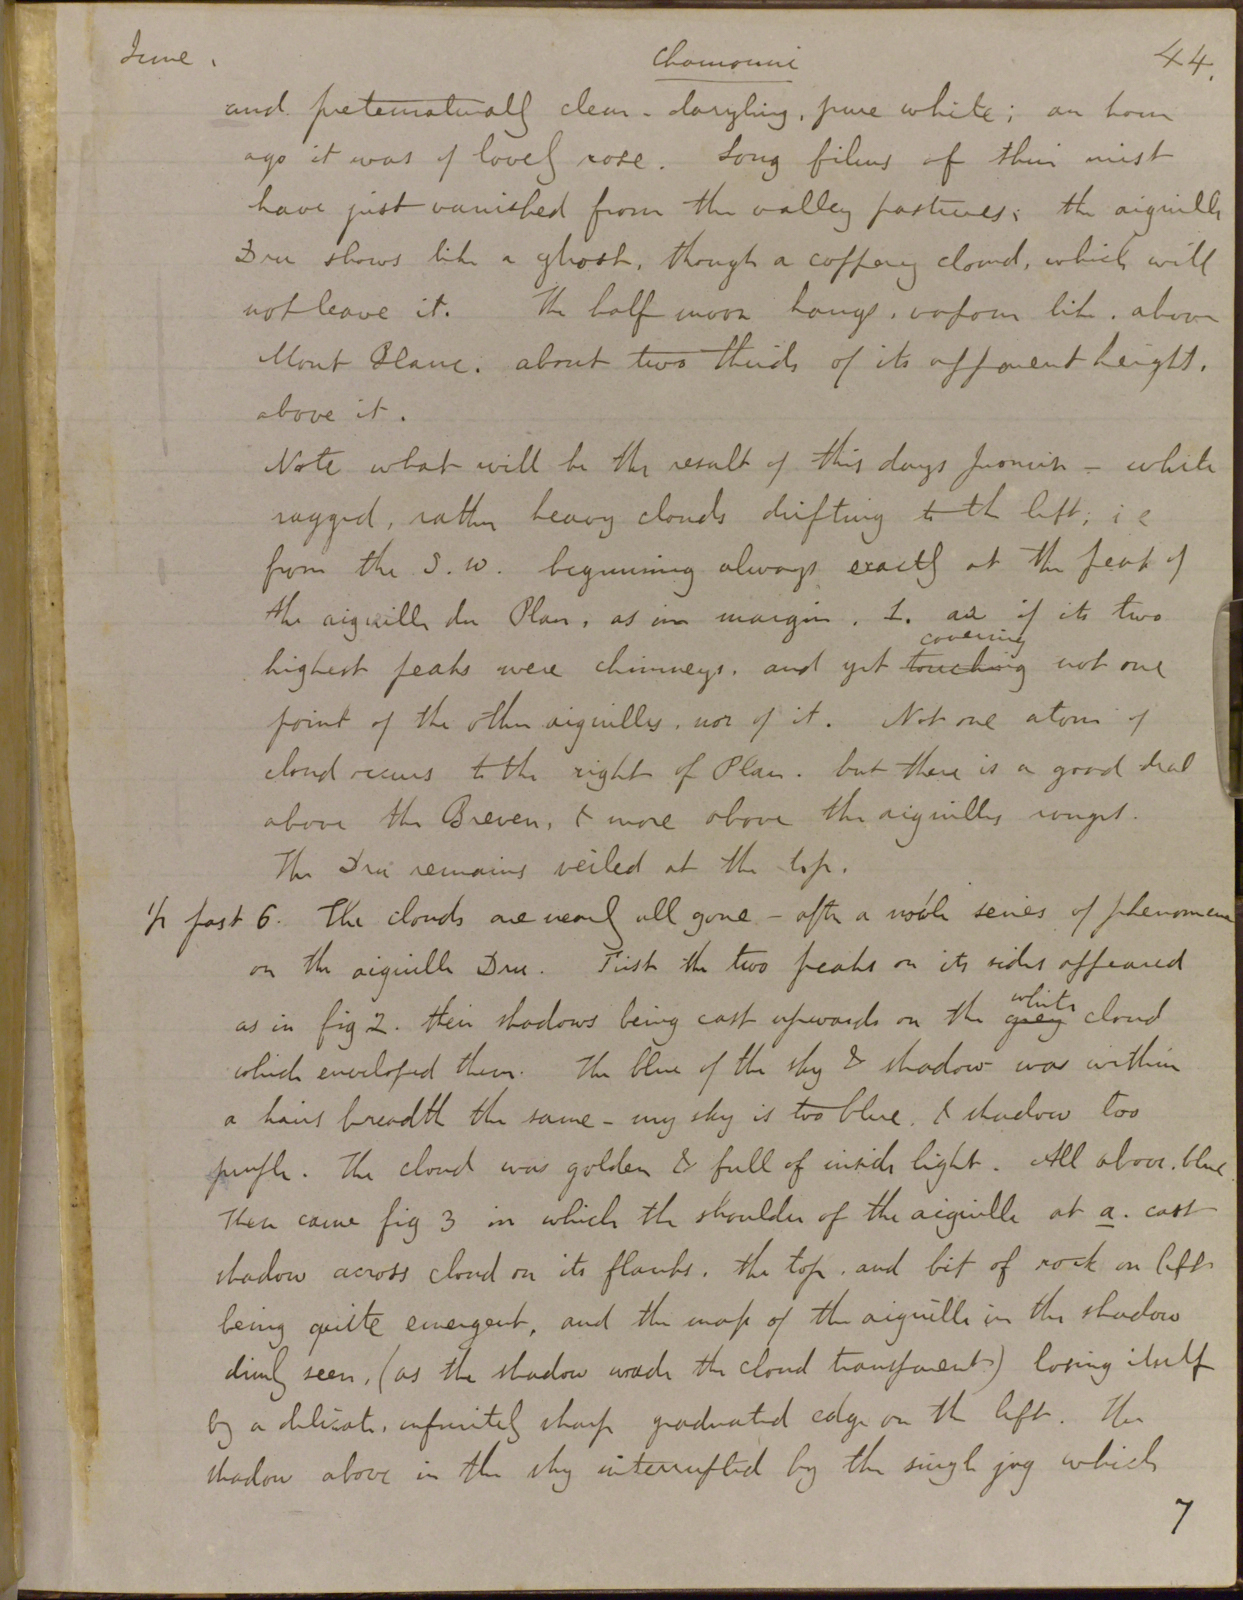 June. Chamouni 44.
and preternaturally clear - dazzling, pure white; an hour
ago it was of lovely rose. Long films of thin mist
have just vanished from the valley pastures; the aiguille
Dru shows like a ghost, though a coppery cloud, which will
not leave it. The half moon hangs, vapour like, above
Mont Blanc, about two thirds of its apparent height,
above it.
Note what will be the result of this days promise - white
ragged, rather heavy clouds drifting to the left; i e
from the S.W. beginning always exactly at the peak of
the aiguille du Plan, as in margin, 1. as if its two
covering
highest peaks were chimneys, and yet touching not one
point of the other aiguilles, nor of it. Not one atom of
cloud occurs to the right of Plan. but there is a good deal
above the Breven, & more above the aiguilles rouges.
The Dru remains veiled at the top.
1/2 past 6. The clouds are nearly all gone - after a noble series of phenomena
on the aiguille Dru. First the two peaks on its sides appeared
white
as in fig 2. their shadows being cast upwards on the grey cloud
which enveloped them. The blue of the sky & shadow was within
a hairs breadth the same - my sky is too blue, & shadow too
purple. The cloud was golden & full of inside light. All above, blue
Then came fig 3 in which the shoulder of the aiguille at a. cast
shadow across cloud on its flanks, the top, and bit of rock on left
being quite emergent, and the map of the aiguille in the shadow
dimly seen, (as the shadow made the cloud transparent) losing itself
by a delicate, infinitely sharp graduated edge on the left. The
shadow above in the sky interrupted by the single jag which
7